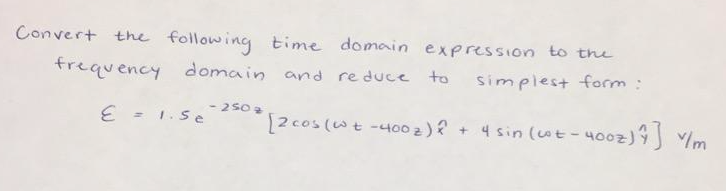 Convert the following time domain expression to the
frequency domain and reduce to simplest form :
ℰ = 1.5e^{-250z} [2cos(ωt -400z)x̂ + 4 sin(ωt-400z)ŷ] V/m